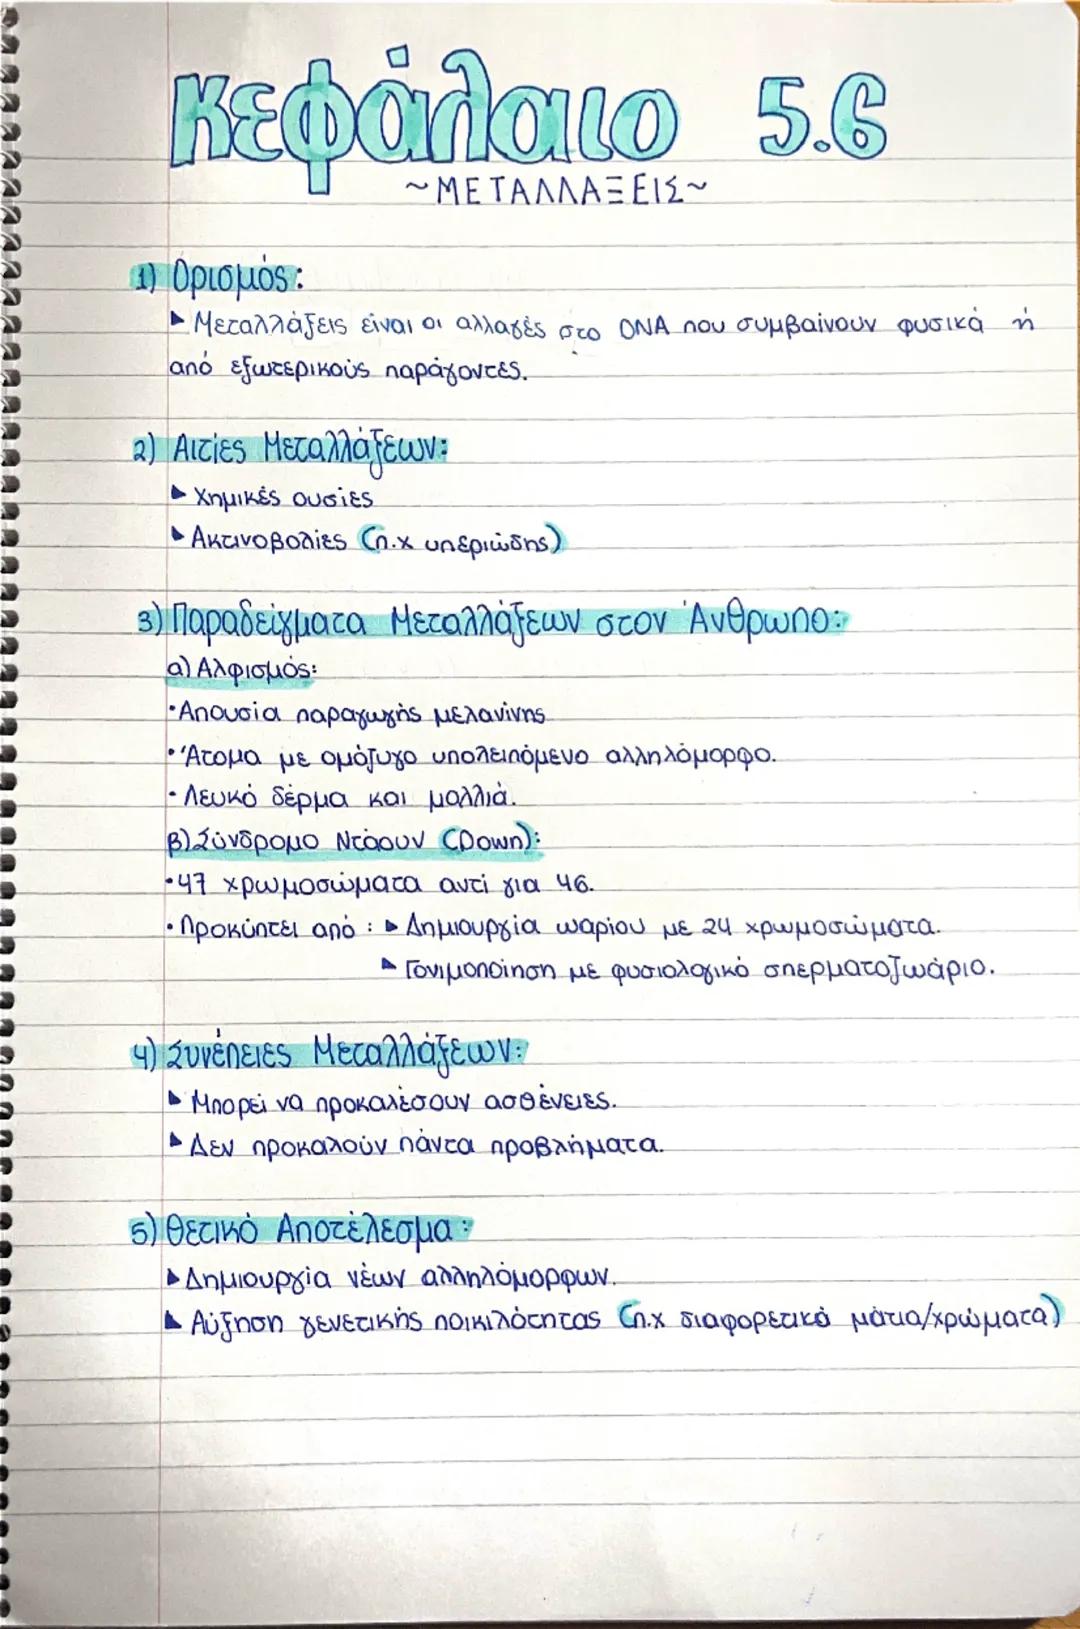 Κεφάλαιο 5.6
~ΜΕΤΑΛΛΑΞΕΙΣ~
1) Ορισμός:
▸ Μεταλλάξεις είναι οι αλλαγές στο DNA που συμβαίνουν φυσικά ή
από εξωτερικούς παράγοντες.
2) Αιτίες Μεταλλάξεων:
▸ Χημικές ουσίες
▸ Ακτινοβολίες (π.χ υπεριώδης)
3) Παραδείγματα Μεταλλάξεων στον Άνθρωπο:
α) Αλφισμός:
• Απουσία παραγωγής μελανίνης
• Άτομα με ομόζυγο υπολειπόμενο αλληλόμορφο.
• Λευκό δέρμα και μαλλιά.
β) Σύνδρομο Ντάουν (Down):
• 47 χρωμοσώματα αντί για 46.
• Προκύπτει από : ▸ Δημιουργία ωαρίου με 24 χρωμοσώματα.
▸ Γονιμοποίηση με φυσιολογικό σπερματοζωάριο.
4) Συνέπειες Μεταλλάξεων:
▸ Μπορεί να προκαλέσουν ασθένειες.
▸ Δεν προκαλούν πάντα προβλήματα.
5) Θετικό Αποτέλεσμα:
▸ Δημιουργία νέων αλληλόμορφων.
▸ Αύξηση γενετικής ποικιλότητας (π.χ διαφορετικά μάτια/χρώματα)